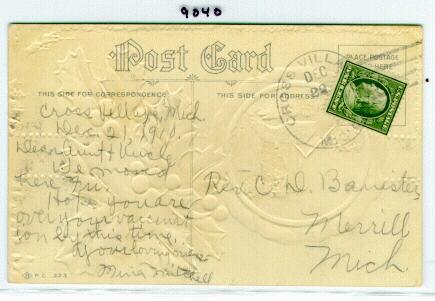 9040
Post Card
THIS SIDE FOR CORRESPONDENCE
THIS SIDE FOR ADDRESS
PLACE POSTAGE
HERE
CROSS VILLAGE
DEC
22
MICH
Cross Village, Mich
Dec. 21, 1910.
Dear Aunt &
We moved
here
Hope you are
over your vaccinat
ion by this time.
Your loving niece
Mina Mitchell
Rev. C. D. Banister
Merrill
Mich.
P.C. 223